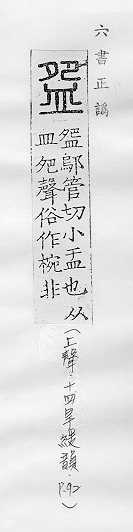 六書正譌
盌
盌鄔管切小盂也从
皿夗聲俗作椀非
(上聲・十四旱緩韻・P.9)